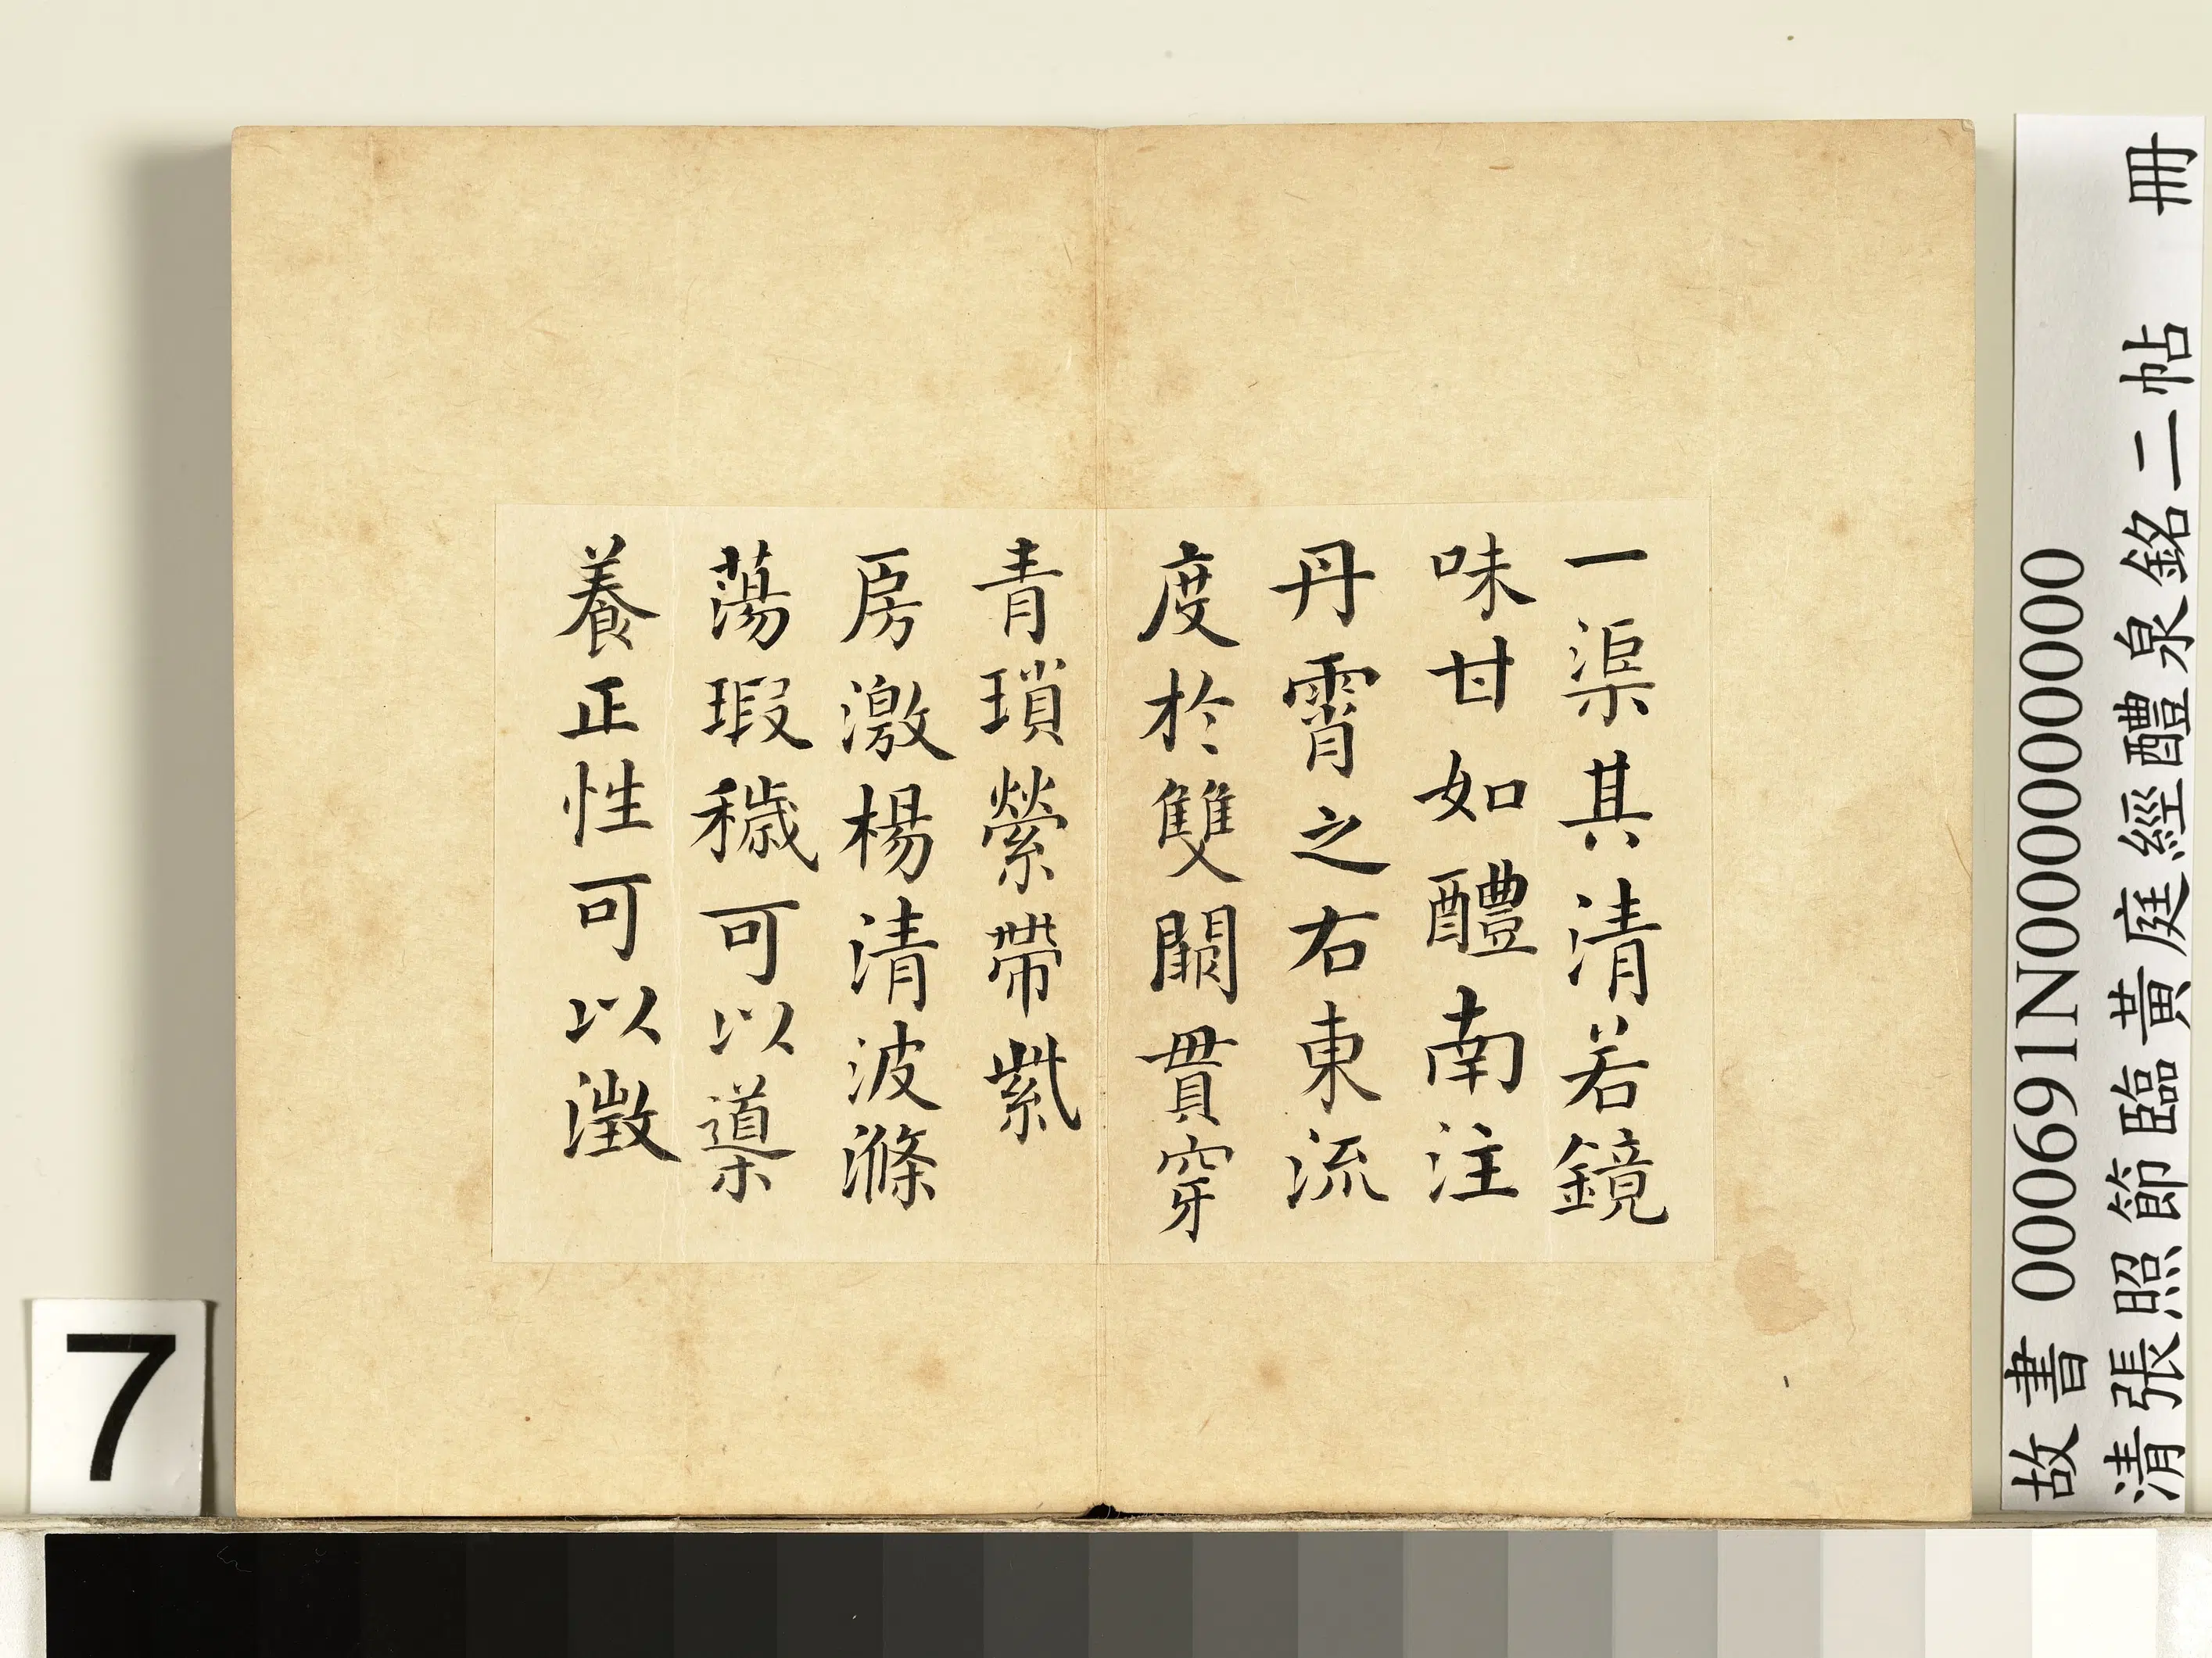 一渠其清若鏡
味甘如醴南注
丹霄之右東流
度於雙闕貫穿
青瑣縈帶紫
房激楊清波滌
蕩瑕穢可以導
養正性可以澂
故書 000691N000000000
清張照節臨黃庭經醴泉銘二帖 冊
7